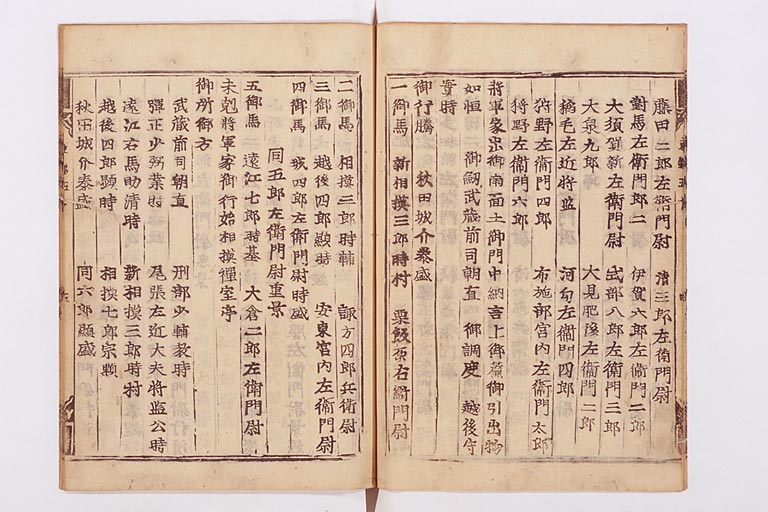 藤田二郎左衛門尉　清三郎左衛門尉
對馬左衛門郎二　伊賀六郎左衛門二郎
大須賀新左衛門尉　式部八郎左衛門三郎
大泉九郎　大見肥後左衛門二郎
鵜毛左近将監　河匂左衛門四郎
狩野左衛門四郎　布施部宮内左衛門太郎
狩野左衛門六郎
将軍家出御南面土御門中納言上御簾御引出物
如恒　御劔武蔵前司朝直　御調度　越後守
實時
御行騰　秋田城介泰盛
一御馬　新相摸三郎時村　粟飯原右衛門尉
二御馬　相摸三郎時輔　諏方四郎兵衛尉
三御馬　越後四郎顕時　安東宮内左衛門尉
四御馬　城四郎左衛門尉時盛
同五郎左衛門尉重景
五御馬　遠江七郎時基　大倉二郎左衛門尉
未剋将軍家御行始相摸禪室亭
御所御方
武蔵前司朝直　刑部少輔教時
弾正少弼業時　尾張左近大夫将監公時
遠江右馬助清時　新相摸三郎時村
越後四郎顕時　相摸七郎宗頼
秋田城介泰盛　同六郎顕盛